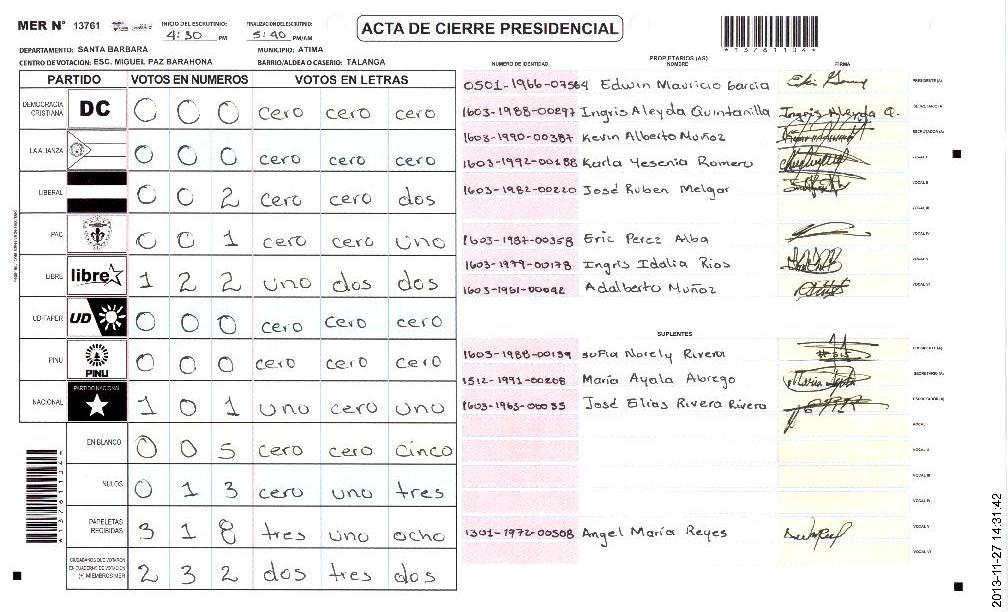 MER N° 13761
INICIO DEL ESCRUTINIO: 4:30 PM
FINALIZACION DEL ESCRUTINIO: 5:40 PM/AM
ACTA DE CIERRE PRESIDENCIAL
*13761134*
DEPARTAMENTO: SANTA BARBARA MUNICIPIO: ATIMA
CENTRO DE VOTACION: ESC. MIGUEL PAZ BARAHONA BARRIO/ALDEA O CASERIO: TALANGA
PARTIDO VOTOS EN NUMEROS VOTOS EN LETRAS
DEMOCRACIA CRISTIANA DC 0 0 0 cero cero cero
LA ALIANZA 0 0 0 cero cero cero
LIBERAL 0 0 2 cero cero dos
PAC 0 0 1 cero cero uno
LIBRE libre 1 2 2 uno dos dos
UD-FAPER UD 0 0 0 cero cero cero
PINU PINU 0 0 0 cero cero cero
NACIONAL PARTIDO NACIONAL 1 0 1 uno cero uno
EN BLANCO 0 0 5 cero cero cinco
NULOS 0 1 3 cero uno tres
PAPELETAS RECIBIDAS 3 1 8 tres uno ocho
CIUDADANOS QUE VOTARON EN CUADERNO DE VOTACION (+) MIEMBROS MER 2 3 2 dos tres dos
PROPIETARIOS (AS)
NUMERO DE IDENTIDAD NOMBRE FIRMA
0501-1966-07564 Edwin Mauricio Garcia PRESIDENTE(A)
1603-1988-00297 Ingris Aleyda Quintanilla Ingris Aleyda Q. SECRETARIO A
1603-1990-00387 Kevin Alberto Muñoz ESCRUTADOR (A)
1603-1992-00188 Karla Yesenia Romero VOCAL I
1603-1982-00220 José Ruben Melgar VOCAL II
VOCAL III
1603-1987-00358 Eric Perez Alba VOCAL IV
1603-1979-00178 Ingris Idalia Rios VOCAL V
1603-1961-00042 Adalberto Muñoz VOCAL VI
SUPLENTES
1603-1988-00139 Sofia Norely Rivera PRESIDENTE (A)
1512-1991-00208 María Ayala Abrego SECRETARIO (A)
1603-1965-00035 José Elias Rivera Rivera ESCRUTADOR (A)
VOCAL I
VOCAL II
VOCAL III
VOCAL IV
1301-1972-00508 Angel María Reyes VOCAL V
VOCAL VI
*13761134*
2013-11-27 14:31:42